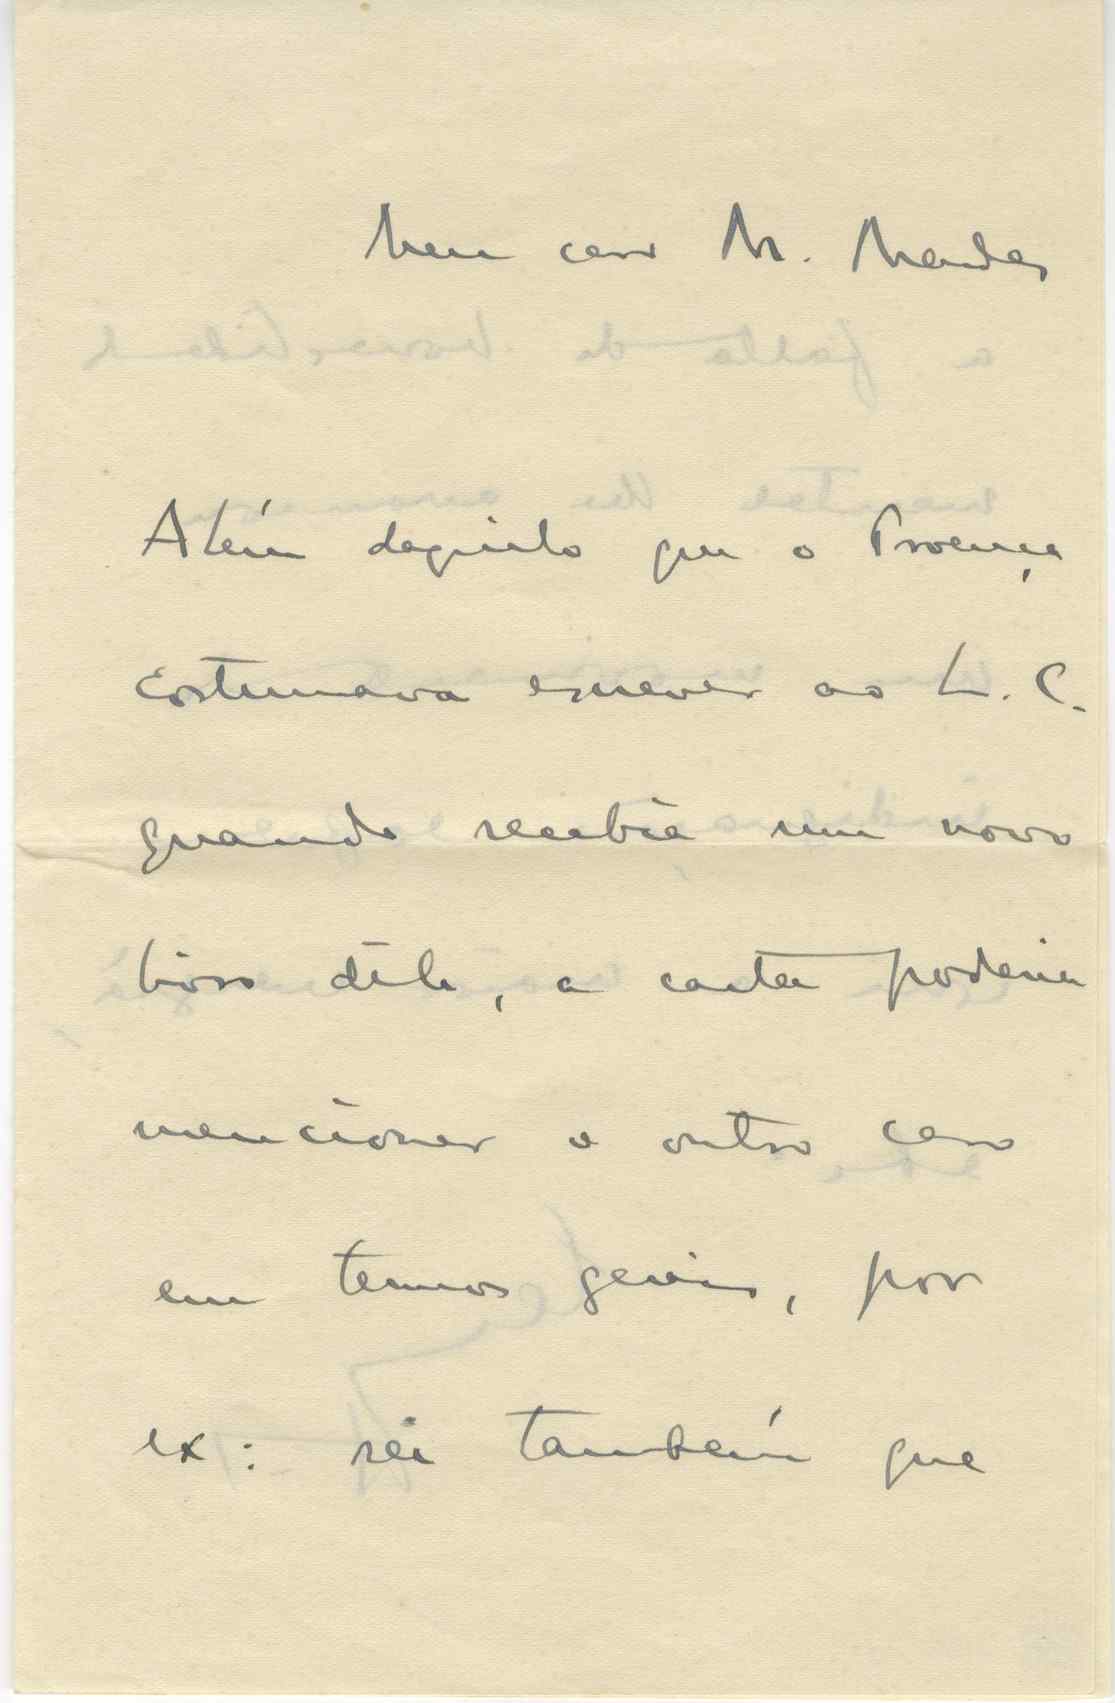 Meu caro M. Mendes
Além daquilo que o Proença
costumava escrever ao L. C.
quando recebia um novo
livro dêle, a carta poderia
mencionar o outro caso
em termos gerais, por
ex: sei também que